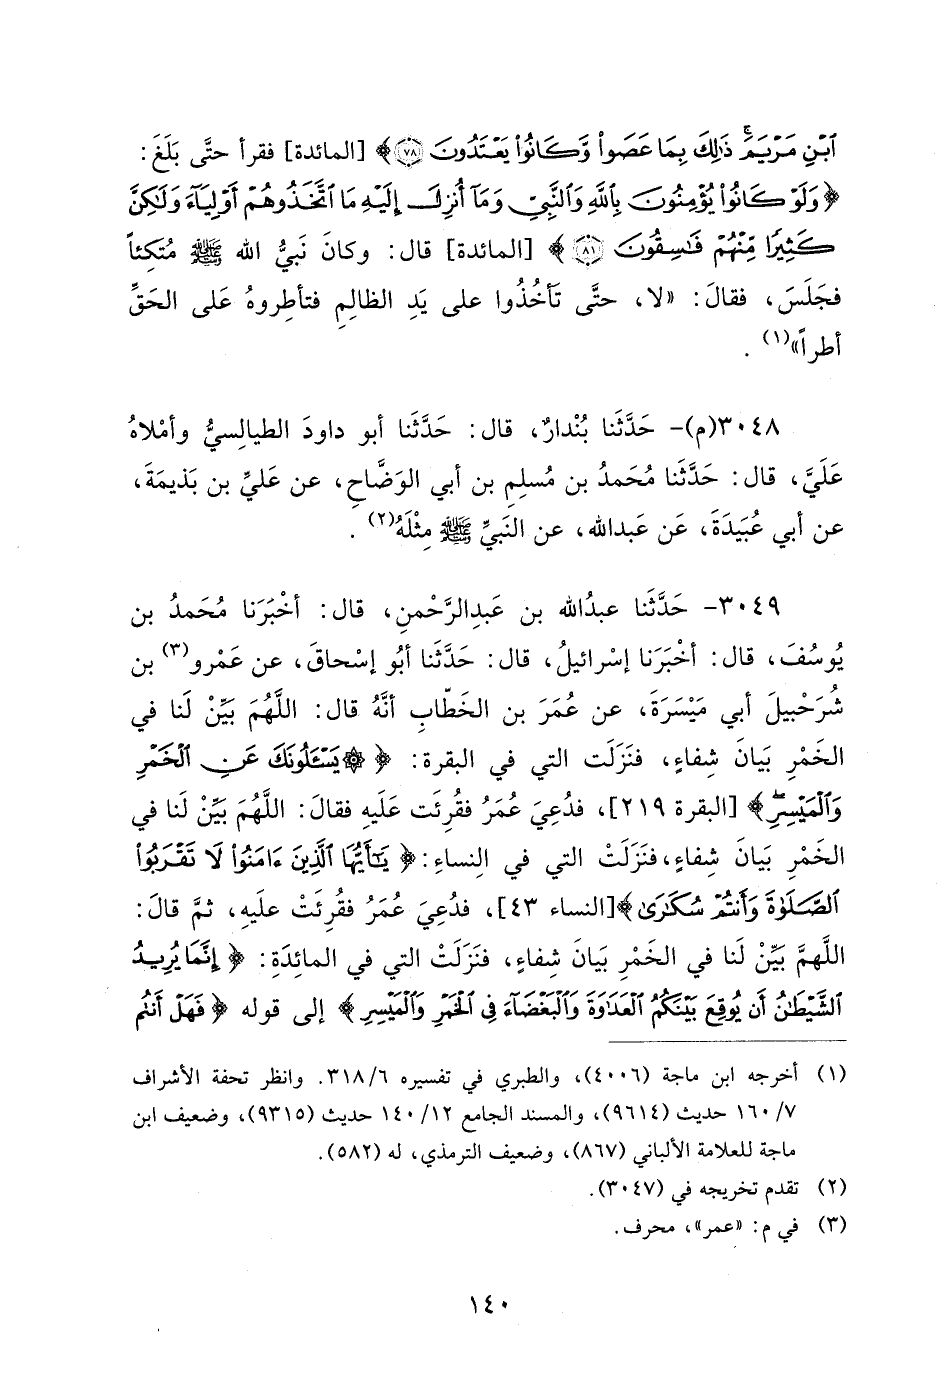 ٱبْنِ مَرْيَمَ ۚ ذَٰلِكَ بِمَا عَصَوا۟ وَّكَانُوا۟ يَعْتَدُونَ ﴿٧٨﴾ ﴾ [المائدة] فقرأ حتَّى بَلَغَ:
﴿ وَلَوْ كَانُوا۟ يُؤْمِنُونَ بِٱللَّهِ وَٱلنَّبِيِّ وَمَآ أُنزِلَ إِلَيْهِ مَا ٱتَّخَذُوهُمْ أَوْلِيَآءَ وَلَٰكِنَّ
كَثِيرًا مِّنْهُمْ فَٰسِقُونَ ﴿٨١﴾ ﴾ [المائدة] قال: وكانَ نَبيُّ الله ﷺ مُتكئاً
فجَلَسَ، فقالَ: «لا، حتَّى تَأخُذُوا على يَدِ الظالِمِ فتأطِروهُ عَلى الحَقِّ
أطراً»(١).
٣٠٤٨(م)- حَدَّثَنا بُنْدارٌ، قال: حَدَّثَنا أبو داودَ الطيالِسيُّ وأمْلاهُ
عَلَيَّ، قال: حَدَّثَنا مُحَمدُ بن مُسلِمِ بن أبي الوَضَّاحِ، عن عَليِّ بن بَذيمَةَ،
عن أبي عُبَيدَةَ، عَن عَبدالله، عن النَبيِّ ﷺ مِثْلَهُ(٢).
٣٠٤٩- حَدَّثَنا عبدُالله بن عَبدِالرَّحْمنِ، قال: أخْبَرَنا مُحَمدُ بن
يُوسُفَ، قال: أخْبَرَنا إسْرائيلُ، قال: حَدَّثَنا أبُو إسْحاقَ، عن عَمْرو(٣) بن
شُرَحْبيلَ أبي مَيْسَرَةَ، عن عُمَرَ بن الخَطّابِ أنَّهُ قال: اللَّهُمَ بَيِّنْ لَنا في
الخَمْرِ بَيانَ شِفاءٍ، فنَزَلَت التي في البقرة: ﴿ ۞ يَسْـَٔلُونَكَ عَنِ ٱلْخَمْرِ
وَٱلْمَيْسِرِ ۖ ﴾ [البقرة ٢١٩]، فدُعِيَ عُمَرُ فقُرِئَت عَلَيهِ فقالَ: اللَّهُمَ بَيِّنْ لَنا في
الخَمْرِ بَيانَ شِفاءٍ، فنَزَلَتْ التي في النِساءِ: ﴿ يَٰٓأَيُّهَا ٱلَّذِينَ ءَامَنُوا۟ لَا تَقْرَبُوا۟
ٱلصَّلَوٰةَ وَأَنتُمْ سُكَٰرَىٰ ﴾ [النساء ٤٣]، فدُعِيَ عُمَرُ فقُرِئَتْ عَليهِ، ثمَّ قالَ:
اللَّهمَّ بَيِّنْ لَنا في الخَمْرِ بَيانَ شِفاءٍ، فنَزَلَتْ التي في المائِدَةِ: ﴿ إِنَّمَا يُرِيدُ
ٱلشَّيْطَٰنُ أَن يُوقِعَ بَيْنَكُمُ ٱلْعَدَٰوَةَ وَٱلْبَغْضَآءَ فِى ٱلْخَمْرِ وَٱلْمَيْسِرِ ﴾ إلى قوله ﴿ فَهَلْ أَنتُم
(١) أخرجه ابن ماجة (٤٠٠٦)، والطبري في تفسيره ٣١٨/٦. وانظر تحفة الأشراف
١٦٠/٧ حديث (٩٦١٤)، والمسند الجامع ١٤٠/١٢ حديث (٩٣١٥)، وضعيف ابن
ماجة للعلامة الألباني (٨٦٧)، وضعيف الترمذي، له (٥٨٢).
(٢) تقدم تخريجه في (٣٠٤٧).
(٣) في م: «عمر»، محرف.
١٤٠